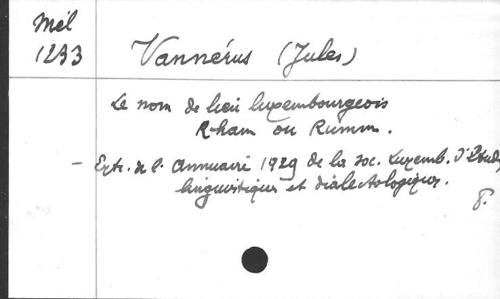 Mél
1233
Vannérus (Jules)
Le nom de lieu luxembourgeois
Rham ou Rumm.
- Extr. de l'Annuaire 1929 de la soc. Luxemb. d'Etudes
linguistiques et dialectologiques.
8.